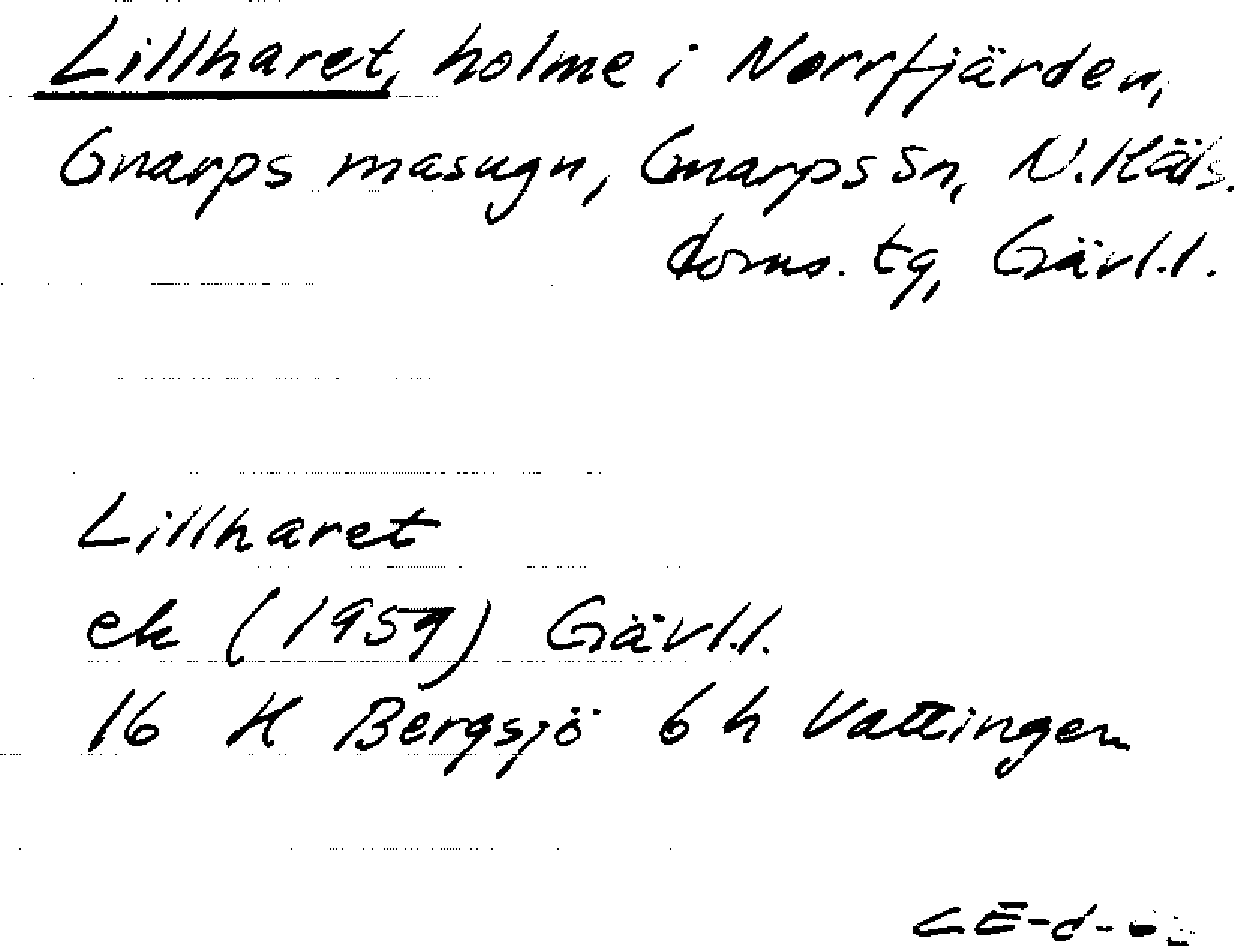 Lillharet, holme i Norrfjärden,
Gnarps masugn, Gnarps sn, N. Häls.
doms. tg, Gävl.l.
Lillharet
ek (1959) Gävl.l.
16 H Bergsjö 6 h Vattingen